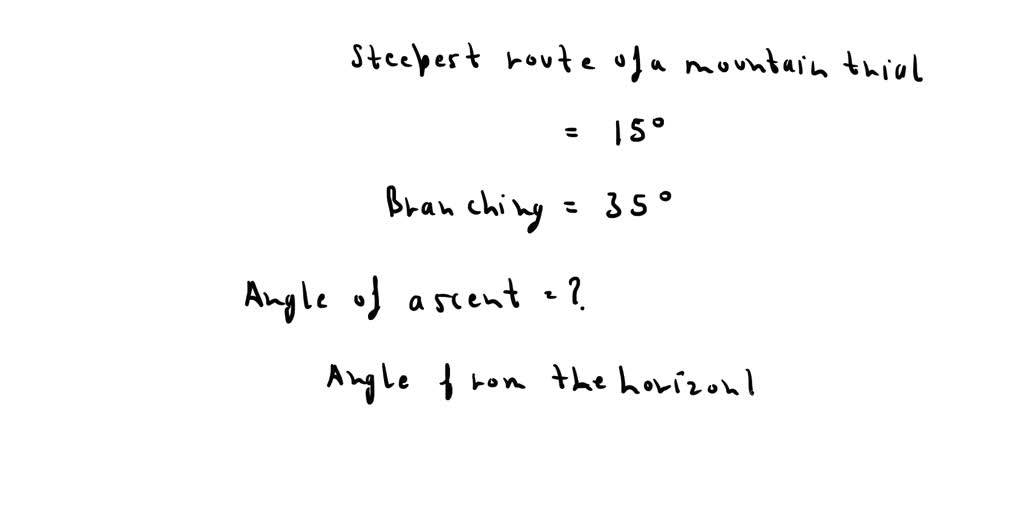 Steepest route of a mountain trial
= 15°
Branching = 35°
Angle of ascent = ?
Angle from the horizonl